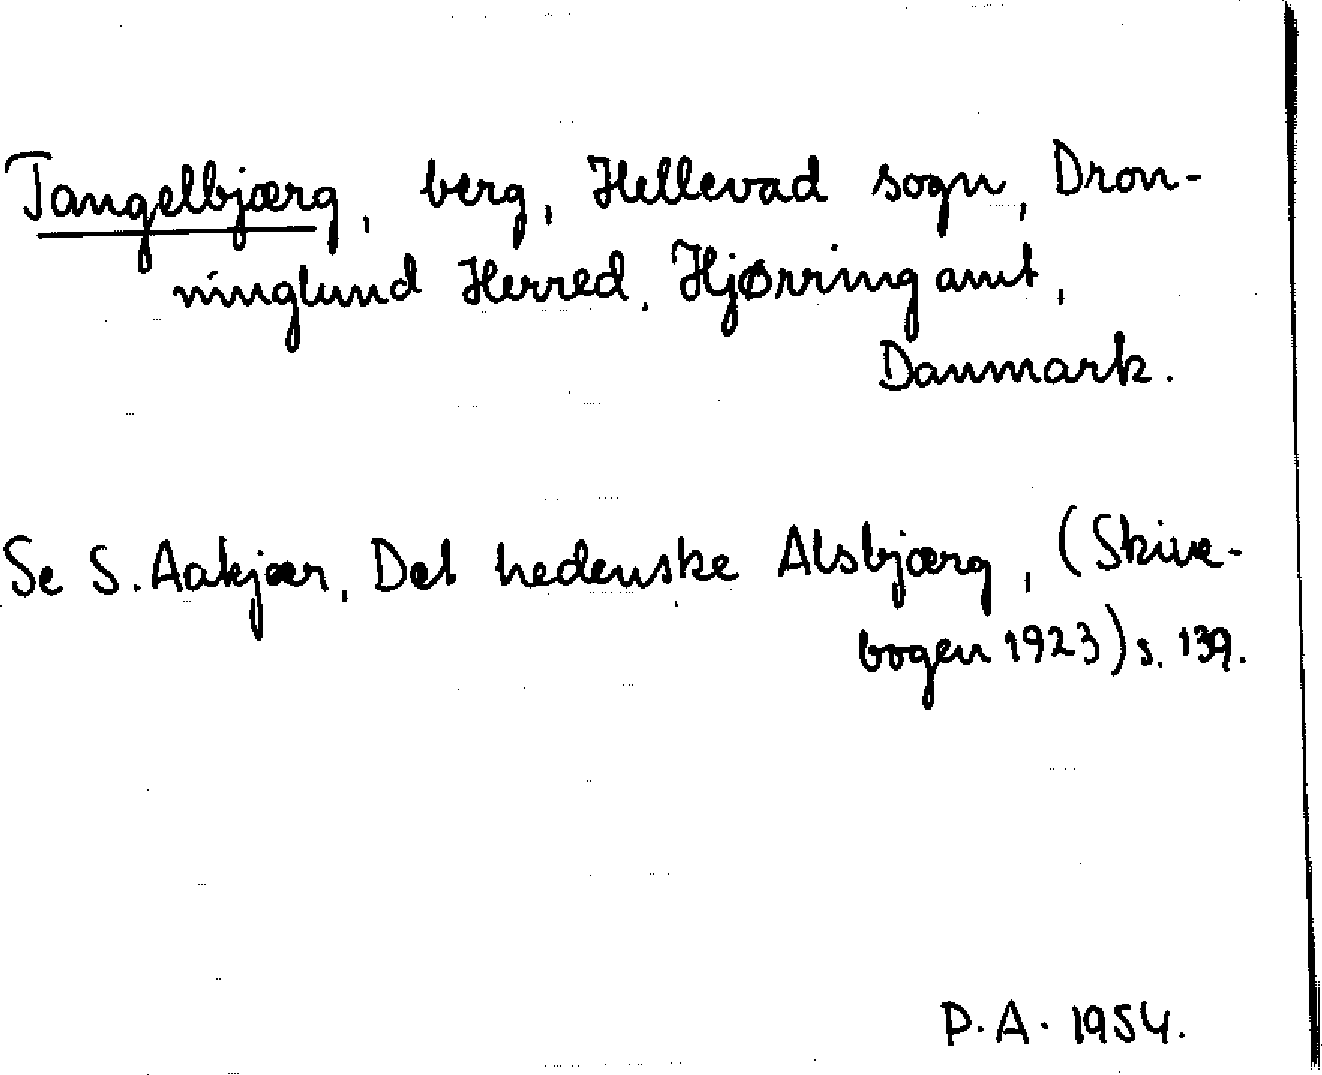 Tangelbjærg, berg, Hellevad sogn, Dron-
ninglund Herred, Hjørring amt,
Danmark.
Se S. Aakjær, Det hedenske Alsbjærg, (Skive-
bogen 1923) s. 139.
P.A. 1954.